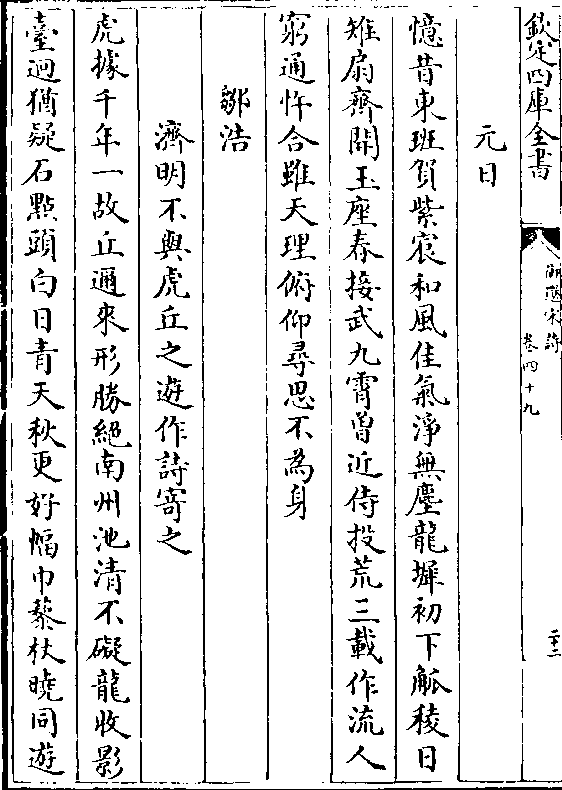 欽定四庫全書
御選宋詩
卷四十九
二十二
元日
憶昔東班賀紫宸和風佳氣淨無塵龍墀初下觚稜日
雉扇齊開玉座春接武九霄曽近侍投荒三載作流人
窮通忤合雖天理俯仰尋思不為身
鄒浩
濟明不與虎丘之遊作詩寄之
虎據千年一故丘邇來形勝絕南州池清不礙龍收影
臺迥猶疑石點頭白日青天秋更好幅巾藜杖曉同遊